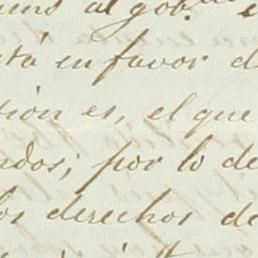 al gob.
tá en favor d
sión es, el que
ados; por lo de
los derechos de